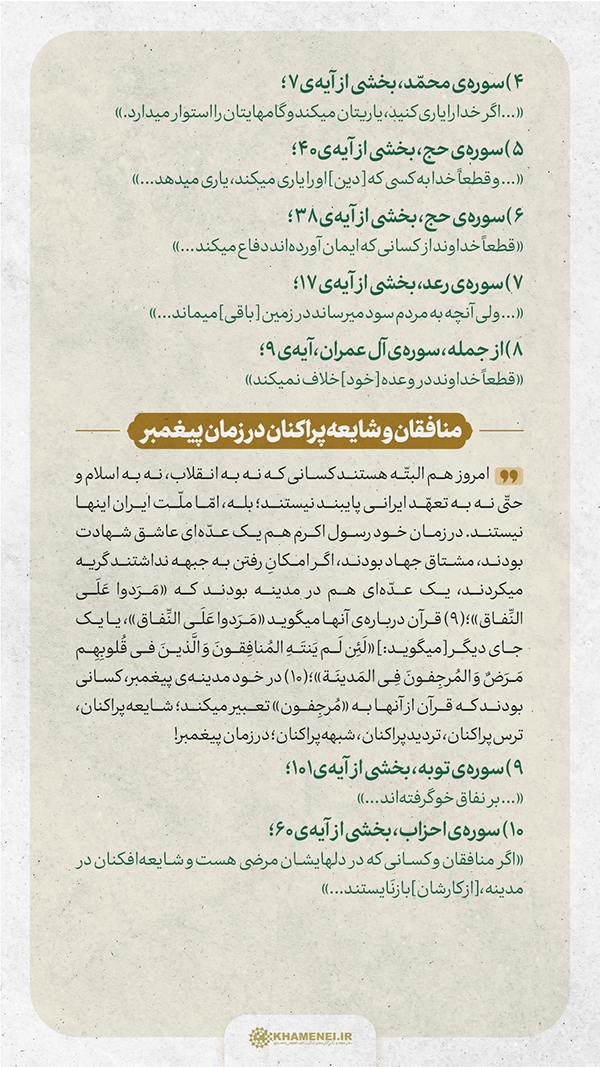 ۴) سوره‌ی محمّد، بخشی از آیه‌ی ۷؛
«...اگر خدا را یاری کنید، یاریتان میکند و گامهایتان را استوار میدارد.»
۵) سوره‌ی حج، بخشی از آیه‌ی ۴۰؛
«... و قطعاً خدا به کسی که [دین] او را یاری میکند، یاری میدهد...»
۶) سوره‌ی حج، بخشی از آیه‌ی ۳۸؛
«قطعاً خداوند از کسانی که ایمان آورده‌اند دفاع میکند...»
۷) سوره‌ی رعد، بخشی از آیه‌ی ۱۷؛
«... ولی آنچه به مردم سود میرساند در زمین [باقی] میماند...»
۸) از جمله، سوره‌ی آل عمران، آیه‌ی ۹؛
«قطعاً خداوند در وعده [خود] خلاف نمیکند»
منافقان و شایعه‌پراکنان در زمان پیغمبر
امروز هم البتّه هستند کسانی که نه به انقلاب، نه به اسلام و
حتّی نه به تعهّد ایرانی پایبند نیستند؛ بله، امّا ملّت ایران اینها
نیستند. در زمان خود رسول اکرم هم یک عدّه‌ای عاشق شهادت
بودند، مشتاق جهاد بودند، اگر امکانِ رفتن به جبهه نداشتند گریه
میکردند، یک عدّه‌ای هم در مدینه بودند که «مَـرَدوا عَلَـی
النِّفـاق»؛(۹) قرآن درباره‌ی آنها میگوید «مَرَدوا عَلَی النِّفـاق»، یا یک
جای دیگر [میگوید:] «لَئِن لَـم یَنتَـهِ المُنافِقـونَ وَ الَّذیـنَ فـی قُلوبِهِم
مَرَضٌ وَ المُرجِفونَ فِی المَدینَة»؛(۱۰) در خود مدینه‌ی پیغمبر، کسانی
بودند که قرآن از آنها به «مُرجِفون» تعبیر میکند؛ شایعه‌پراکنان،
ترس‌پراکنان، تردیدپراکنان، شبهه‌پراکنان؛ در زمان پیغمبر!
۹) سوره‌ی توبه، بخشی از آیه‌ی ۱۰۱؛
«... بر نفاق خو گرفته‌اند...»
۱۰) سوره‌ی احزاب، بخشی از آیه‌ی ۶۰؛
«اگر منافقان و کسانی که در دلهایشان مرضی هست و شایعه‌افکنان در
مدینه، [از کارشان] باز نَایستند...»
KHAMENEI.IR